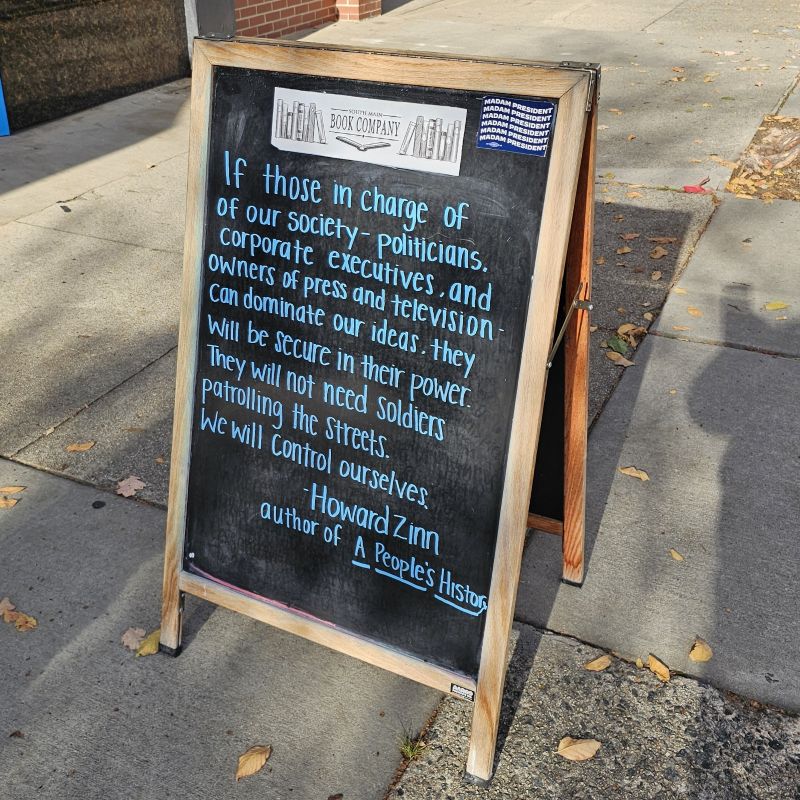 SOUTH MAIN
BOOK COMPANY
MADAM PRESIDENT
MADAM PRESIDENT
MADAM PRESIDENT
MADAM PRESIDENT
MADAM PRESIDENT
MADAM PRESIDENT
If those in charge of
of our society - politicians,
corporate executives, and
owners of press and television -
can dominate our ideas, they
will be secure in their power.
They will not need soldiers
patrolling the streets.
We will control ourselves.
- Howard Zinn
author of A People's History